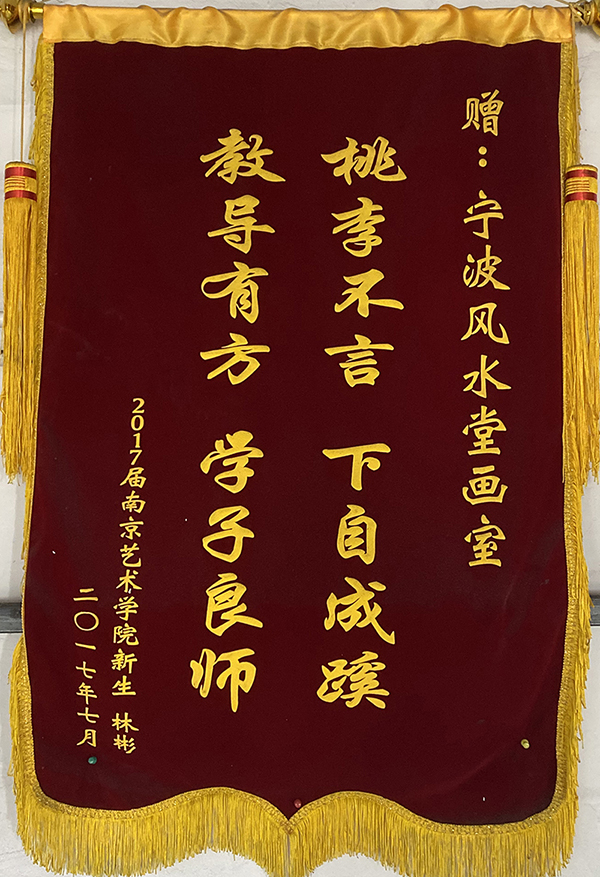 赠：宁波风水堂画室
桃李不言 下自成蹊
教导有方 学子良师
2017届南京艺术学院新生 林彬
二〇一七年七月